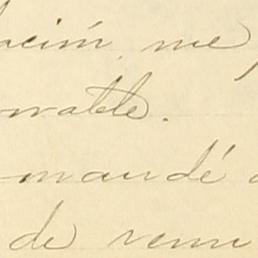 ación, me
orable.
mandé a
de venir